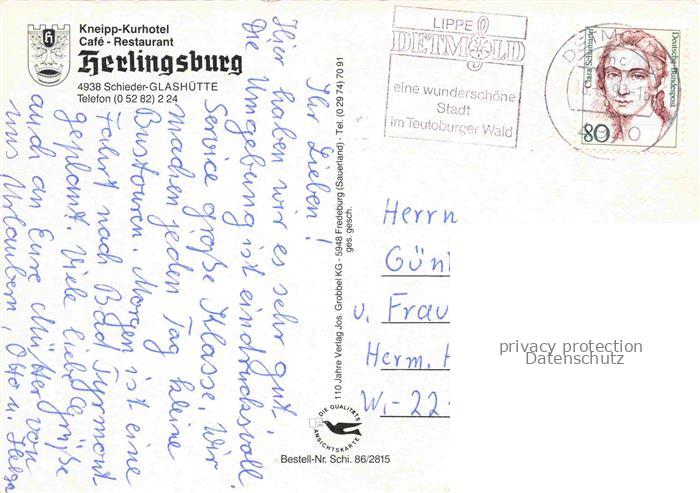 Kneipp-Kurhotel
Café - Restaurant
Herlingsburg
4938 Schieder-GLASHÜTTE
Telefon (0 52 82) 2 24
Ihr Lieben!
Hier haben wir es sehr gut,
Die Umgebung ist eindrucksvoll
Service große Klasse. Wir
machen jeden Tag kleine
Bustouren. Morgen ist eine
Fahrt nach Bad Pyrmont
geplant. Viele liebe Grüße
auch an Eure Mütter von
uns Urlaubern, Otto u. Helga
110 Jahre Verlag Jos. Grobbel KG - 5948 Fredeburg (Sauerland) - Tel. (0 29 74) 70 91
ges. gesch.
LIPPE
DETMOLD
eine wunderschöne
Stadt
im Teutoburger Wald
Clara Schumann
Deutsche Bundespost
80
Herrn
Gün
u. Frau
Herm. H
W.-22
privacy protection
Datenschutz
DIE QUALITÄTS
ANSICHTSKARTE
Bestell-Nr. Schi. 86/2815